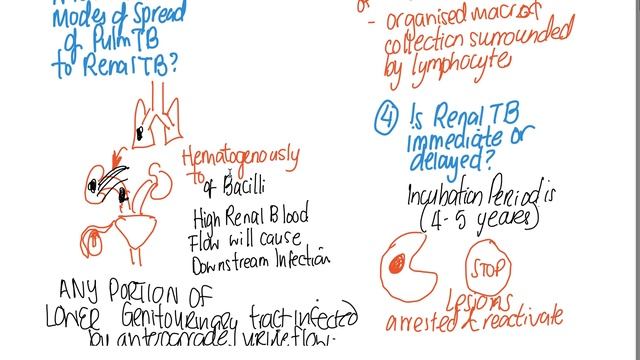 Modes of Spread
of Pulm TB
to Renal TB?
Hematogenously
to of Bacilli
High Renal Blood
Flow will cause
Downstream Infection
ANY PORTION OF
LOWER Genitourinary tract infected
by anterograde urine flow.
or
- organised macroϕ
collection surrounded
by lymphocyte
4 Is Renal TB
immediate or
delayed?
Incubation Period is
(4-5 years)
STOP
Lesions
arrested & reactivate